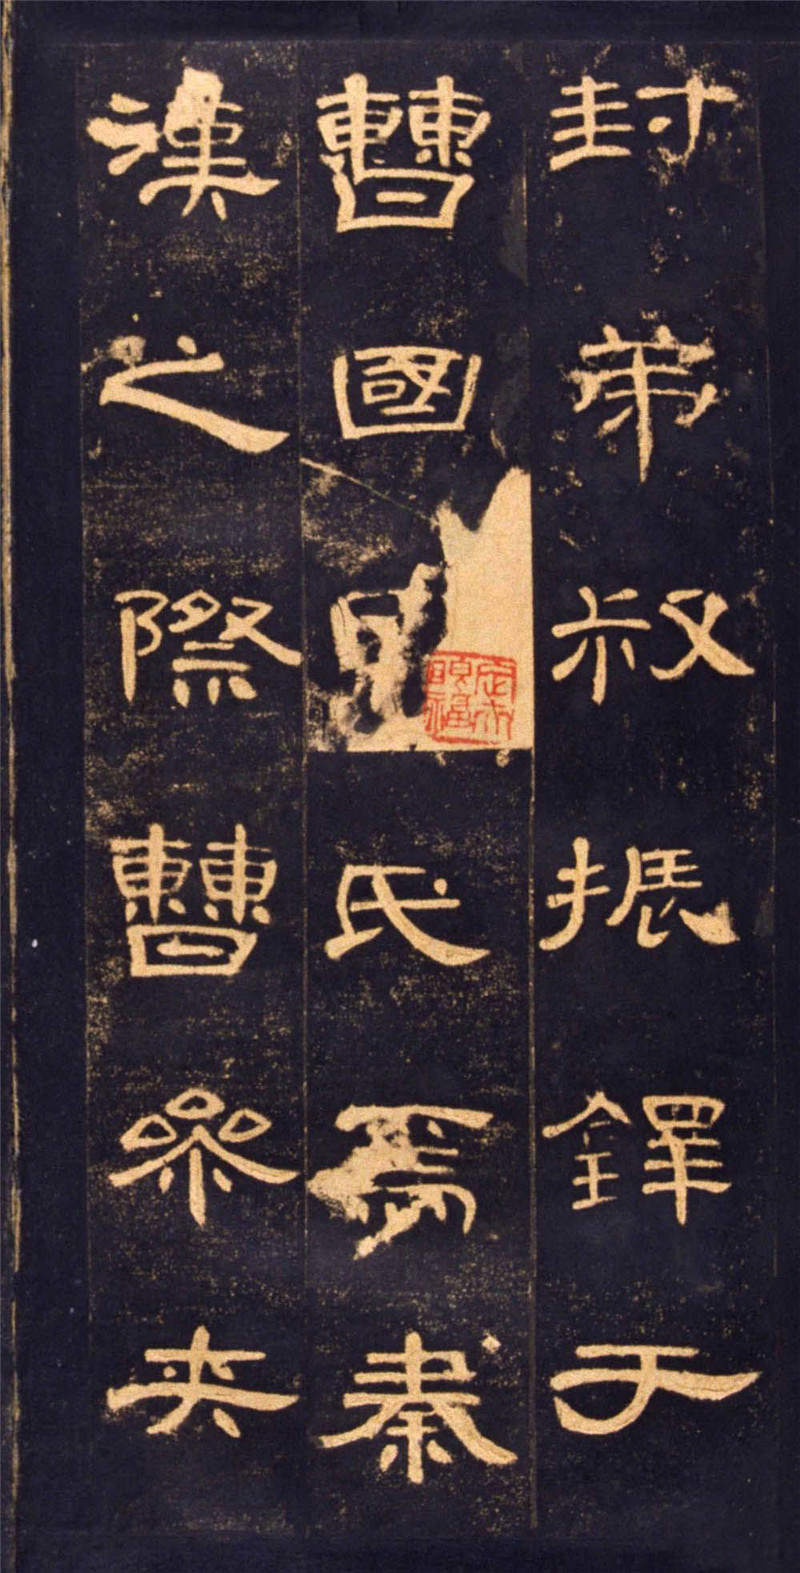 封弟叔振鐸于
曹國氏焉秦
漢之際曹參夾